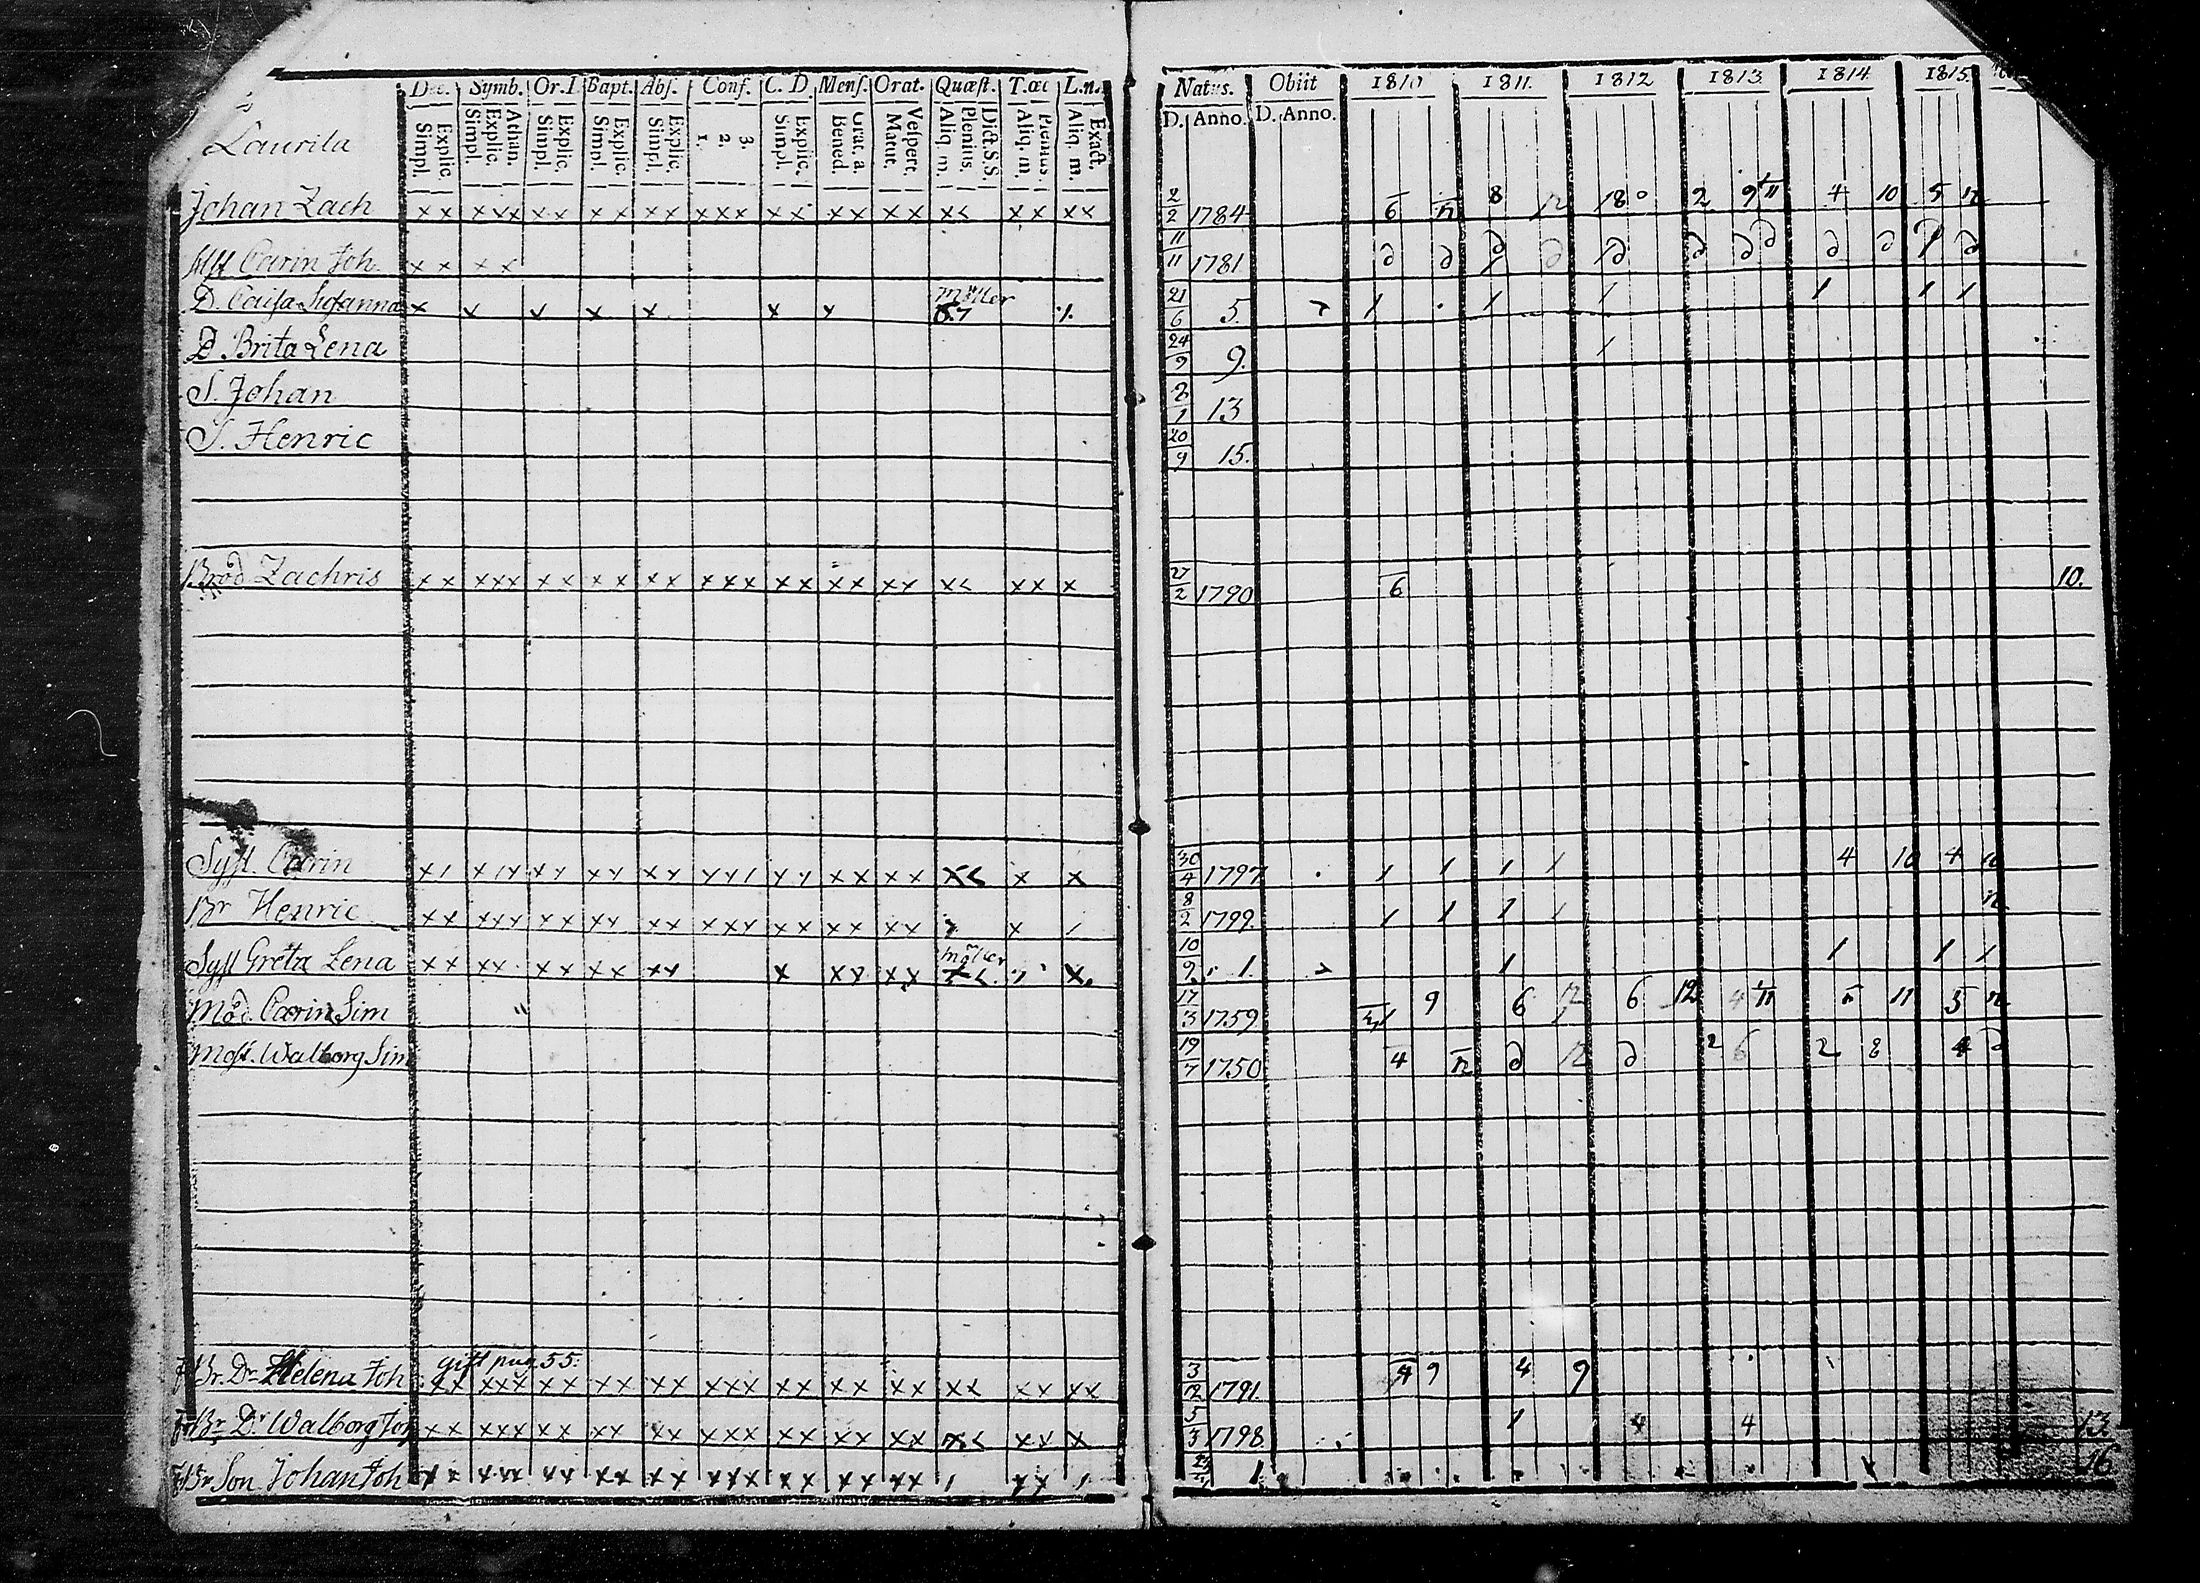 Dec. Symb. Or.D Bapt. Abſ. Conf. C. D. Menſ. Orat. Quæſt. T.œc L.n. Natus. Obiit 1810 1811. 1812 1813. 1814 1815.
Explic. Simpl. Athan. Explic. Simpl. Explic. Simpl. Explic. Simpl. Explic. Simpl. 3. 2. 1. Explic. Simpl. Grat. a. Bened. Veſpert. Matut. Dict. S.S. Plenius. Aliq. m. Plenius. Aliq. m. Exact. Aliq. m. D. Anno. D. Anno.
Laurila
Johan Zach x x x x x x x x x x x x x x x x x x x x x x x x x 2/2 1784 6 12 8 12 18 2 9 11 4 10 5 12
Carin Joh x x x x 11/11 1781
D. Caisa Susanna x x x x x x x möller 21/6 5. 1 1 1 1 1 1
D. Brita Lena 24/9 9. 1
S. Johan 2/1 13
S. Henric 20/9 15.
Brod Zachris x x x x x x x x x x x x x x x x x x x x x x x x 27/2 1790 6 10.
Syst. Carin 30/4 1797 1 1 1 1 4 10 4
Br Henric 8/2 1799. 1 1 1 1
Syst Greta Lena möller 10/9 1. 1 1 1 1
Mod. Carin Sim 17/3 1759 9 6 12 6 12 4 11 11 5
Most. Walborg Sim 19/7 1750 4 12 12 2 6 2 8 4
gift pag 55.
Br. Dr Helena Joh x x x x x x x x x x x x x x x x x x x x x x x x x 3/12 1791. 4 9 4 9
Br Dr Walborg Joh x x x x x x x x x x x x x x x x x x x x x x x x 5/3 1798. 1 4 4 13
Br Son Johan Joh 1. 16